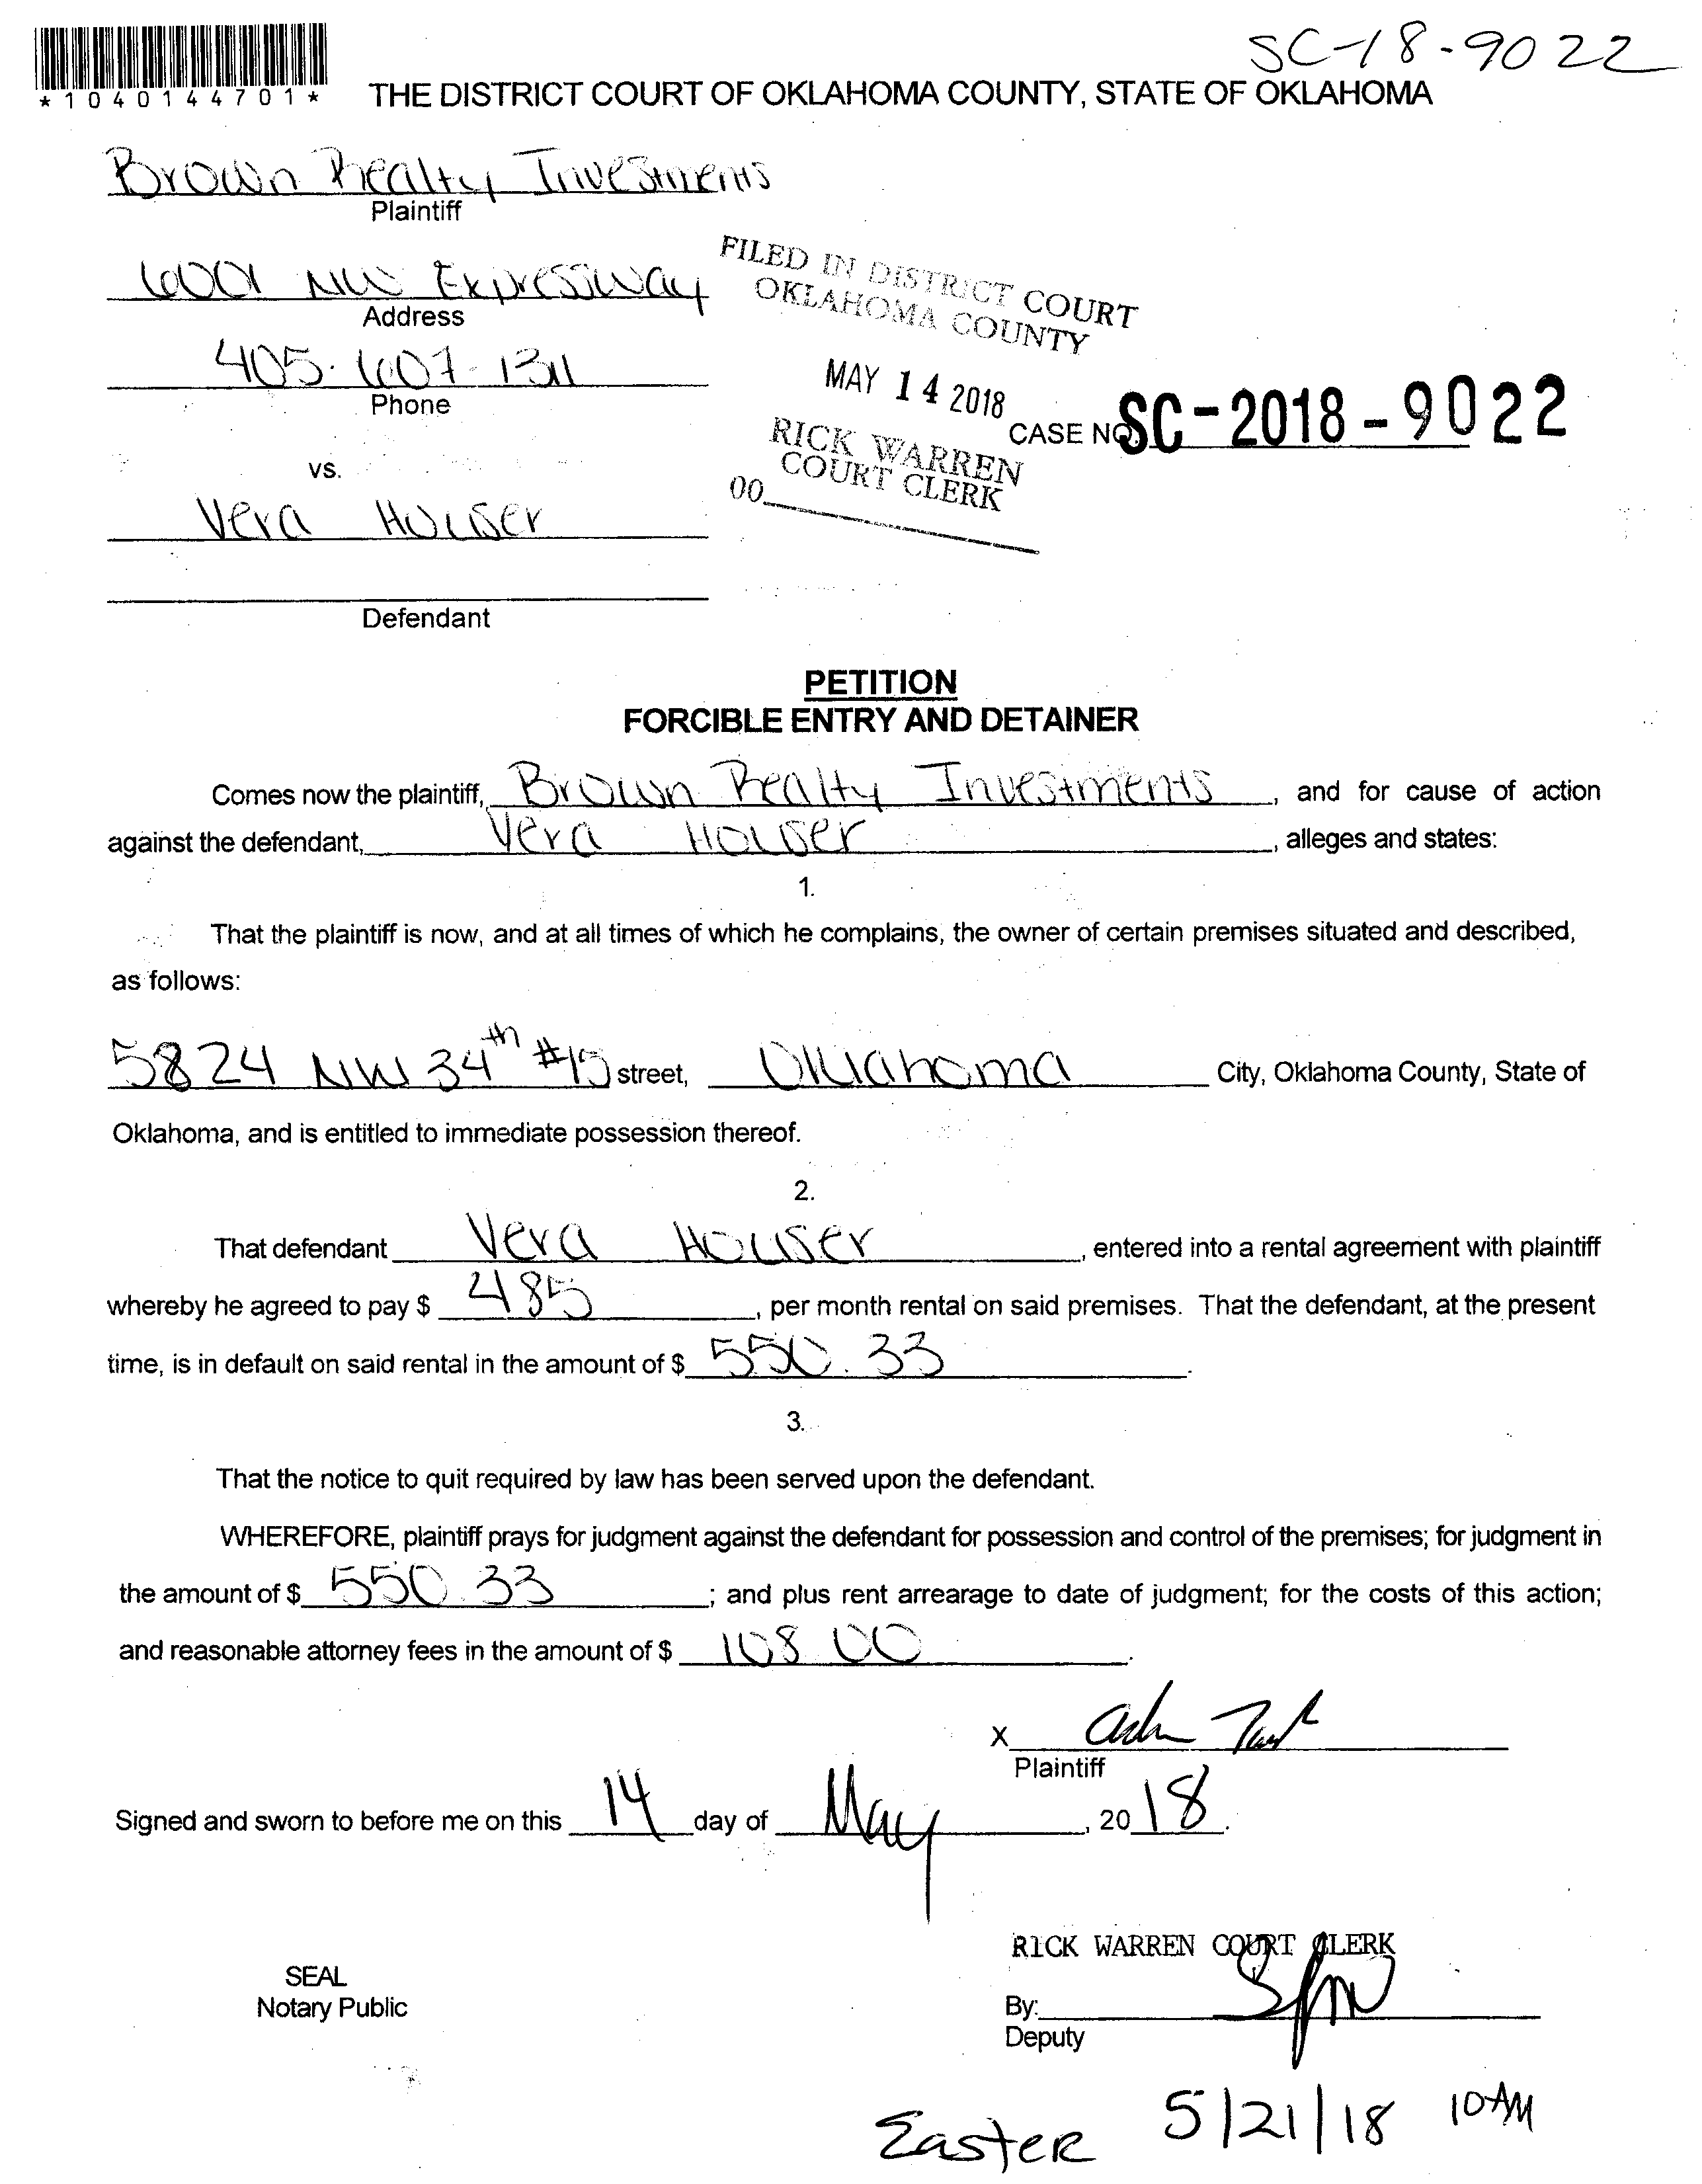 SC-18-9022
*1040144701*
THE DISTRICT COURT OF OKLAHOMA COUNTY, STATE OF OKLAHOMA
Brown Realty Investments
Plaintiff
6001 NW Expressway
Address
405-607-1311
Phone
FILED IN DISTRICT COURT
OKLAHOMA COUNTY
MAY 14 2018
RICK WARREN
COURT CLERK
00
CASE NO. SC-2018-9022
vs.
Vera Houser
Defendant
PETITION
FORCIBLE ENTRY AND DETAINER
Comes now the plaintiff, Brown Realty Investments, and for cause of action
against the defendant, Vera Houser, alleges and states:
1.
That the plaintiff is now, and at all times of which he complains, the owner of certain premises situated and described,
as follows:
5824 NW 34th #15 street, Oklahoma City, Oklahoma County, State of
Oklahoma, and is entitled to immediate possession thereof.
2.
That defendant Vera Houser, entered into a rental agreement with plaintiff
whereby he agreed to pay $ 485, per month rental on said premises. That the defendant, at the present
time, is in default on said rental in the amount of $ 550.33.
3.
That the notice to quit required by law has been served upon the defendant.
WHEREFORE, plaintiff prays for judgment against the defendant for possession and control of the premises; for judgment in
the amount of $ 550.33; and plus rent arrearage to date of judgment; for the costs of this action;
and reasonable attorney fees in the amount of $ 108.00.
X
Plaintiff
Signed and sworn to before me on this 14 day of May, 2018.
RICK WARREN COURT CLERK
SEAL
Notary Public
By:
Deputy
Easter 5/21/18 10AM